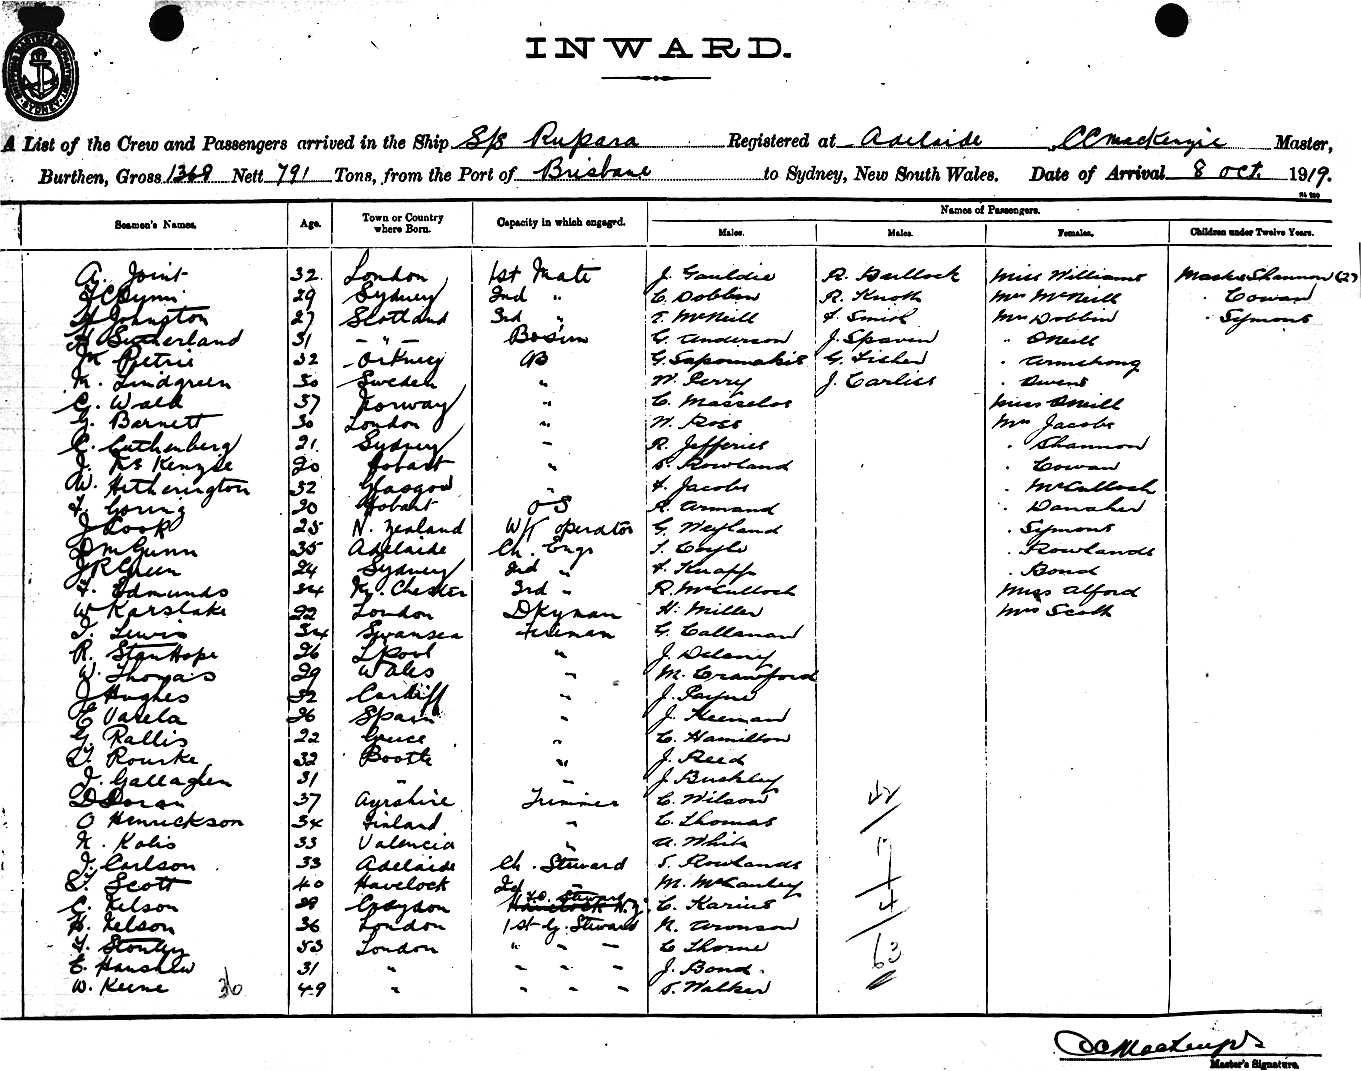 INWARD.
A List of the Crew and Passengers arrived in the Ship S/S Rupara Registered at Adelaide CC Mackenzie Master,
Burthen, Gross 1368 Nett 791 Tons, from the Port of Brisbane to Sydney, New South Wales. Date of Arrival 8 Oct. 1919.
Names of Passengers.
Seamen's Names. Age. Town or Country where Born. Capacity in which engaged. Males. Males. Females. Children under Twelve Years.
A. Joint 32 London 1st Mate J. Gauldie R. Bullock Miss Williams Master Shannon (2)
29 Sydney 2nd " C. Dobbin R. Knoth Mrs McNeill " Cowan
27 Scotland 3rd " T. McNeill F. Smith Mrs Dobbin " Symons
H Sutherland 31 - " - Bosun G. Anderson J. Spaven " ONeill
J K Petrie 32 Orkney AB G. G. Fisher " Armstrong
M. Lindgreen 30 Sweden " W. Perry J. Carliss " Owens
C. Wald 37 Norway " C. Masselos Miss ONeill
G. Barnett 30 London " W. Ross Mrs Jacobs
C. Guthenberg 21 Sydney " R. Jefferies " Shannon
J. McKenzie 20 Hobart " S. Rowland " Cowan
W. Hetherington 32 Glasgow " F. Jacobs " McCulloch
F. Going 20 Hobart OS R. Armand " Danaher
J Cook 25 N. Zealand W/T operator G. Weyland " Symons
D McGunn 35 Adelaide Ch. Engr T. Coyle " Rowlands
J R Green 24 Sydney 2nd " F. Knapp " Bond
F. Edmunds 34 Chester 3rd " R. McCulloch Miss Alford
W Karslake 22 London Dkyman H. Miller Mrs Scott
T. Lewis 34 Swansea Fireman G. Callanan
R. StanHope 26 L'pool " J. Delany
W. Thomas 29 Wales " M. Crawford
J Hughes 32 Cardiff " J. Payne
E Varela 26 Spain " J. Keenan
G. Rallis 22 Greece " C. Hamilton
T. Rourke 32 Bootle " J. Reed
J. Gallagher 31 " " J. Buckley
D Doran 37 Ayrshire Trimmer C. Wilson 42
O Henrickson 34 Finland " C. Thomas
N. Kalis 33 Valencia " A. White 17
J. Carlson 33 Adelaide Ch. Steward S. Rowlands
T. Scott 40 Havelock 2d " M. McCauley
C. Nelson 29 Croydon Steward C. Karius 4
H. Nelson 36 London 1st G. Steward N. Aronson
F. Stanley 53 London " " " C Thorne 63
E. Hanshew 31 " " " " J. Bond.
W. Keene 36 49 " " " " S. Walker
CC Mackenzie
Master's Signature.
SYDNEY